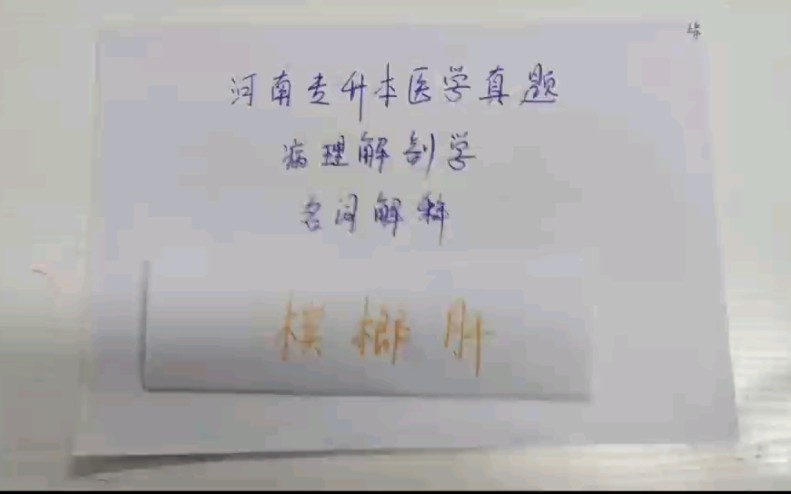 河南专升本医学真题
病理解剖学
名词解释
槟榔肝